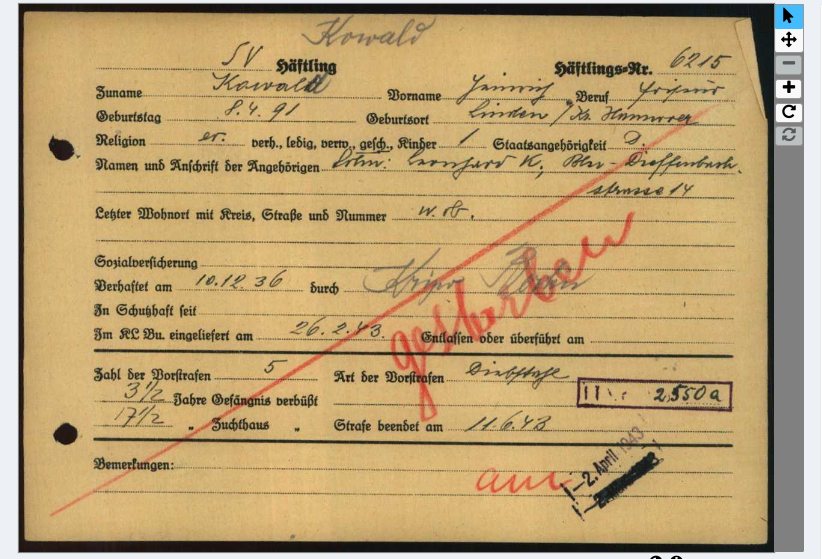 Kowald
SV Häftling Häftlings-Nr. 6215
Zuname Kowald Vorname Heinrich Beruf Friseur
Geburtstag 8.4.91 Geburtsort Linden / Kr. Hannover
Religion ev. verh., ledig, verw., gesch., Kinder 1 Staatsangehörigkeit D.
Namen und Anschrift der Angehörigen Leonhard K., Dieffenbach-
strasse 14
Letzter Wohnort mit Kreis, Straße und Nummer w. ob.
Sozialversicherung
Verhaftet am 10.12.36 durch Kripo
In Schutzhaft seit
Im KL Bu. eingeliefert am 26.2.43. Entlassen oder überführt am
gestorben
Zahl der Vorstrafen 5 Art der Vorstrafen Diebstahl
3½ Jahre Gefängnis verbüßt 2550a
17½ " Zuchthaus " Strafe beendet am 11.6.43
Bemerkungen:
am
-2. April 1943